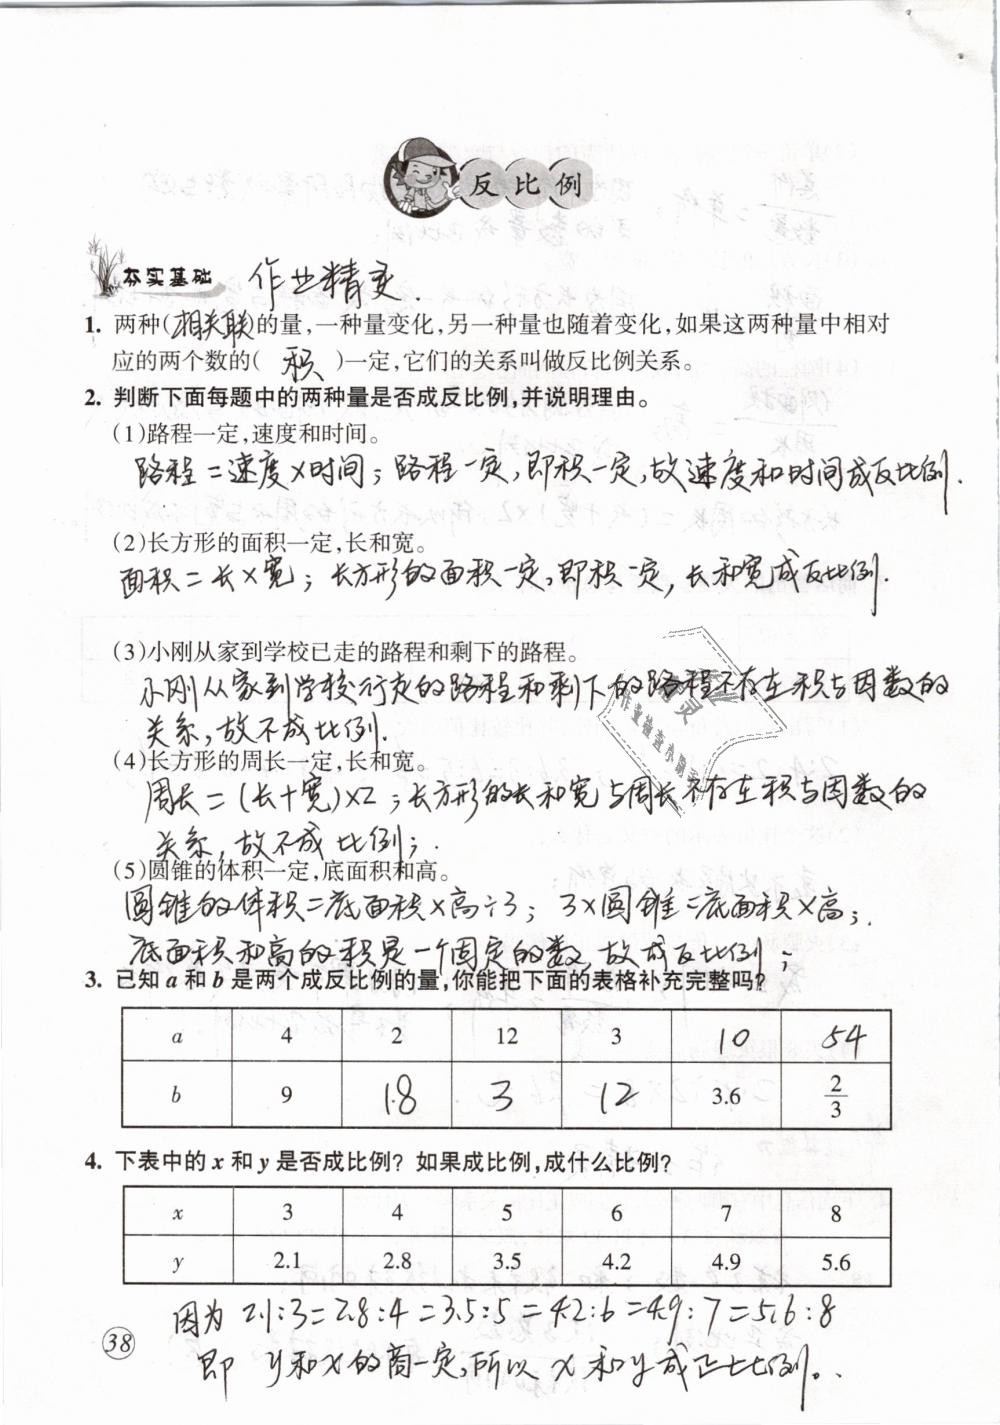 反比例
夯实基础 作业精灵.
1. 两种(相关联)的量,一种量变化,另一种量也随着变化,如果这两种量中相对
应的两个数的( 积 )一定,它们的关系叫做反比例关系。
2. 判断下面每题中的两种量是否成反比例,并说明理由。
(1)路程一定,速度和时间。
路程=速度×时间;路程一定,即积一定,故速度和时间成反比例.
(2)长方形的面积一定,长和宽。
面积=长×宽;长方形的面积一定,即积一定,长和宽成反比例.
(3)小刚从家到学校已走的路程和剩下的路程。
小刚从家到学校行走的路程和剩下的路程不存在积与因数的
关系,故不成比例.
(4)长方形的周长一定,长和宽。
周长=(长+宽)×2;长方形的长和宽与周长不存在积与因数的
关系,故不成比例;.
(5)圆锥的体积一定,底面积和高。
圆锥的体积=底面积×高÷3;3×圆锥=底面积×高;.
底面积和高的积是一个固定的数,故成反比例;
3. 已知a和b是两个成反比例的量,你能把下面的表格补充完整吗?
a 4 2 12 3 10 54
b 9 18 3 12 3.6 2/3
4. 下表中的x和y是否成比例?如果成比例,成什么比例?
x 3 4 5 6 7 8
y 2.1 2.8 3.5 4.2 4.9 5.6
因为2.1:3=2.8:4=3.5:5=4.2:6=4.9:7=5.6:8
即 y和x的商一定,所以 x和y成正比例。
38
作业检查小助手